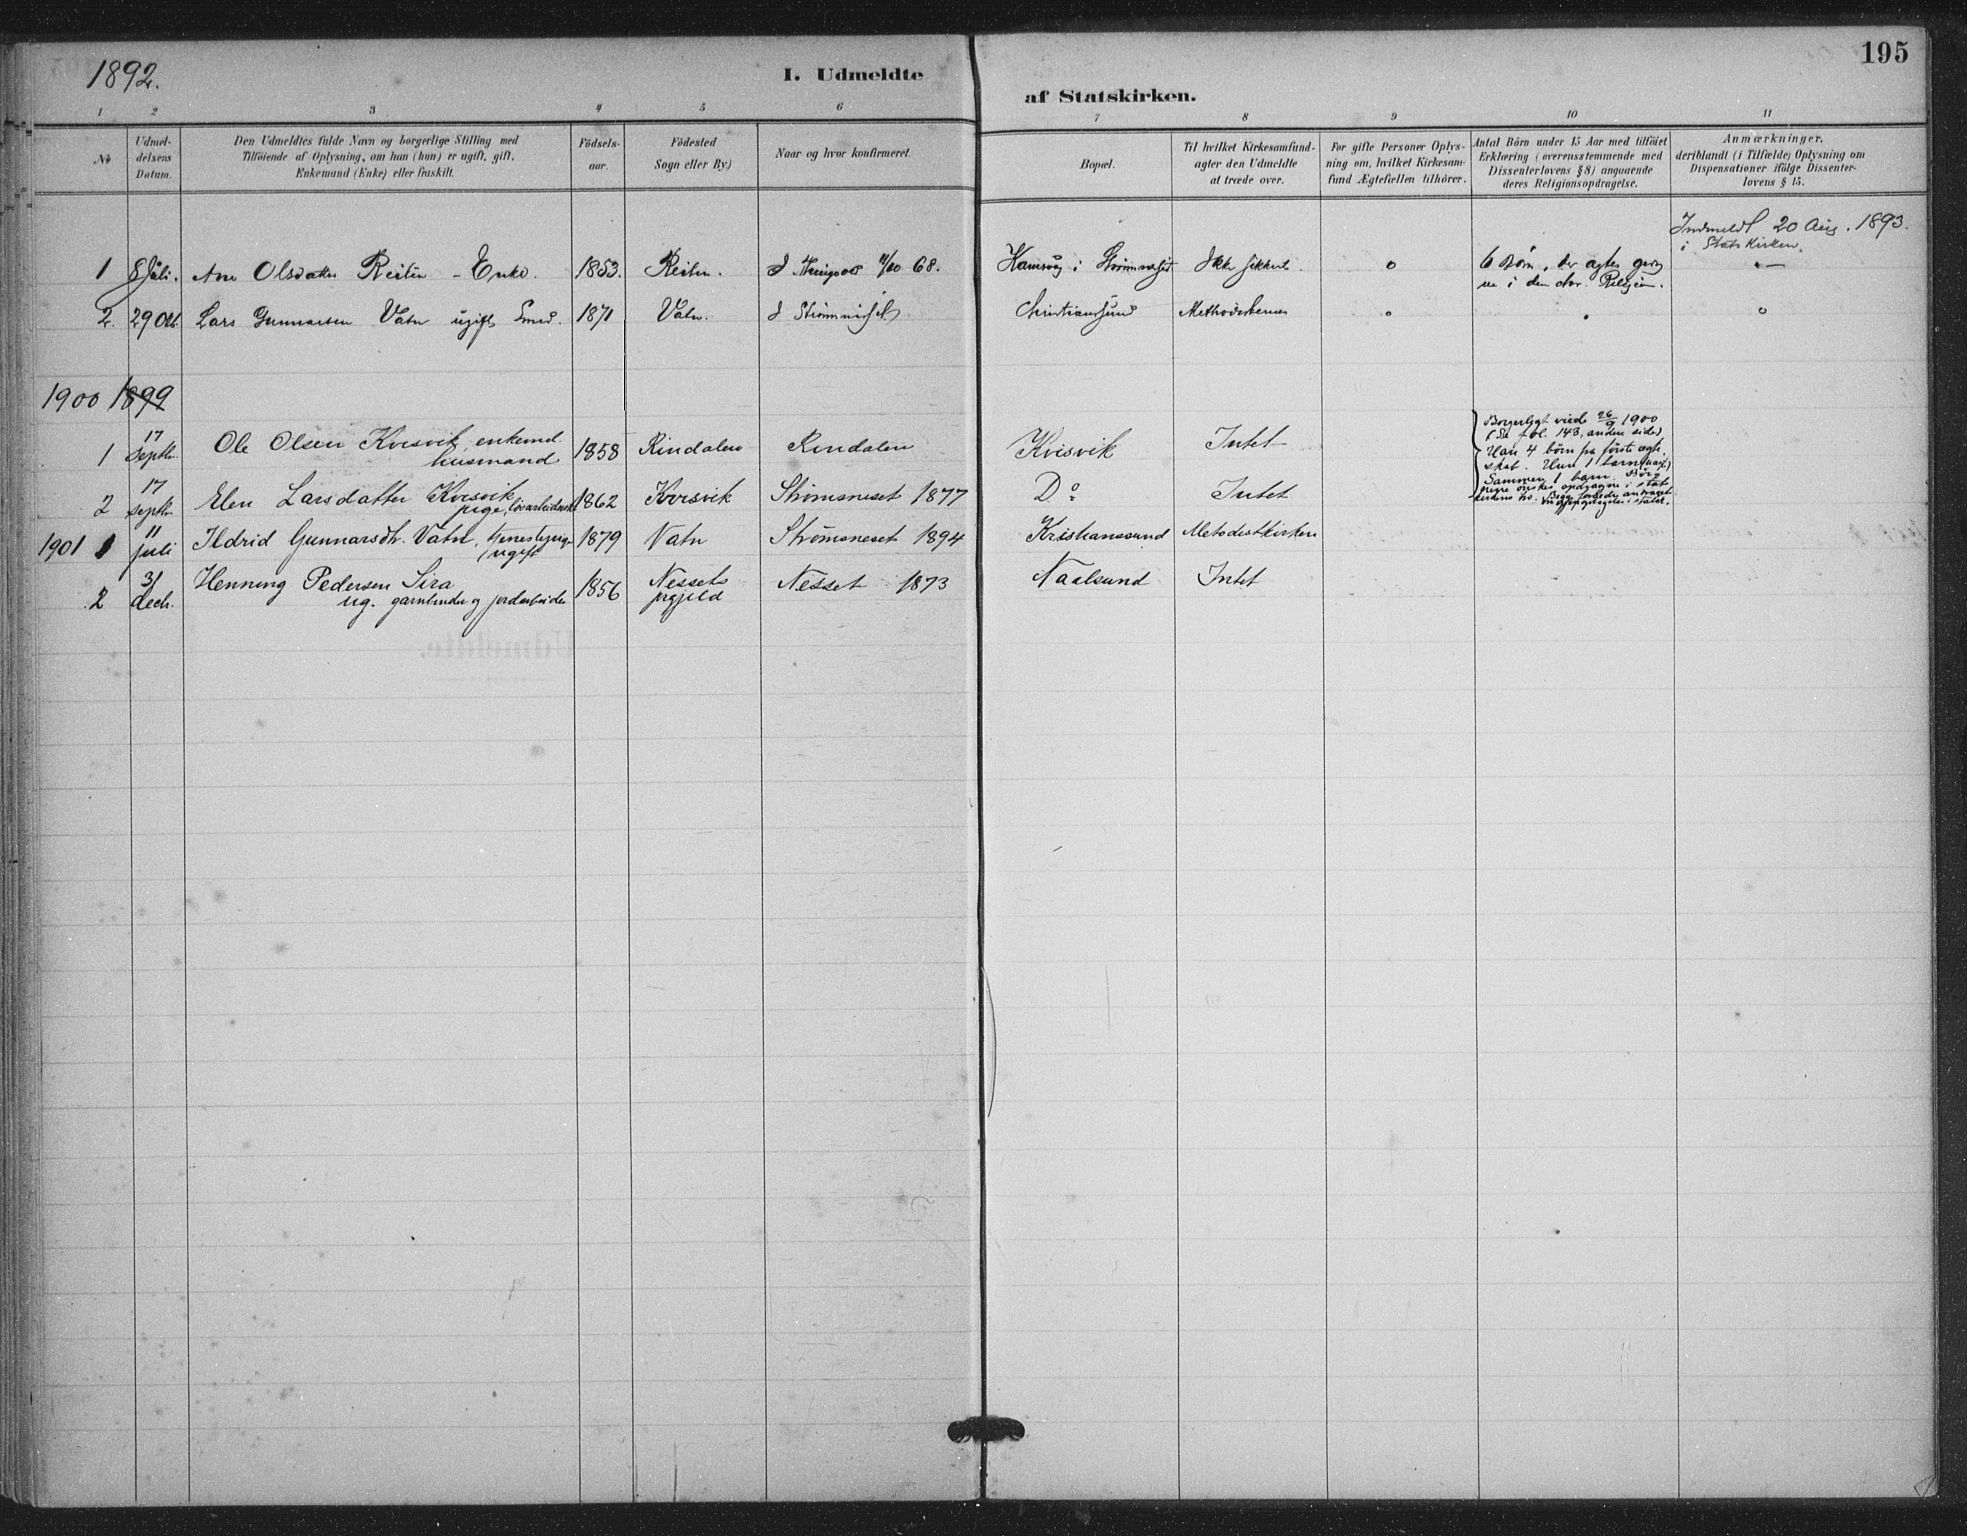 195
1892.
I. Udmeldte af Statskirken.
1 2 3 4 5 6 7 8 9 10 11
No
Udmel-
delsens
Datum.
Den Udmeldtes fulde Navn og borgerlige Stilling med
Tilföiende af Oplysning, om han (hun) er ugift, gift,
Enkemand (Enke) eller fraskilt.
Födsels-
aar.
Födested
Sogn eller By)
Naar og hvor konfirmeret.
Bopæl.
Til hvilket Kirkesamfund-
agter den Udmeldte
at træde over.
For gifte Personer Oplys-
ning om, hvilket Kirkesam-
fund Ægtefællen tilhörer.
Antal Börn under 15 Aar med tilföiet
Erklæring (overensstemmende med
Dissenterlovens § 8) angaaende
deres Religionsopdragelse.
Anmærkninger,
deriblandt (i Tilfælde) Oplysning om
Dispensationer ifölge Dissenter-
lovens § 15.
Indmeldt 20 Aug. 1893.
i Statskirken.
1 8 Juli. Ane Olsdatter Reiten - Enke. 1853. Reiten. I 68. i Ikke sikkert. o 6 Börn, der agtes
i den Religion.
2. 29 Okt. Lars Gunnarsen Vatn ugift Smed. 1871 Vatn. I Christianssund Methodisternes o o
1900 1899
1 17 Septbr. Ole Olsen Kvisvik, enkemd.
husmand 1858 Rindalen Rindalen Kvisvik Intet
Borgerligt viede 26/9 1900
(Se fol. 143, anden side)
Han 4 börn fra förste ægte-
skab. Hun 1 barn
Sammen 1 barn.
2 17 septbr. Elen Larsdatter Kvisvik
pige, lösarbeiderske 1862 Kvisvik Strömsneset 1877 Do Intet
1901 1 11 juli Ildrid Gunnarsdtr. Vatn, tjenestepige
ugift 1879 Vatn Strömsneset 1894 Kristianssund Metodistkirken
2 31 decb. Henning Pedersen Sira
ug. garnbinder og jordarbeider 1856 Nessets
prgjeld Nesset 1873 Naalsund Intet